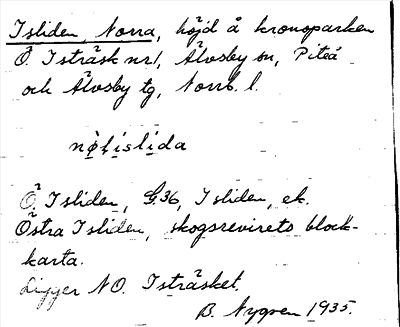 Isliden, Norra, höjd å kronoparken
Ö. Isträsk nr 1, Älvsby sn, Piteå
och Älvsby tg, Norrb. l.
nọ̀ḷịslịda
Ö. Isliden, G.36, Isliden, ek.
Östra Isliden, skogsrevirets block-
karta.
Ligger NO. Isträsket.
B. Nygren 1935.